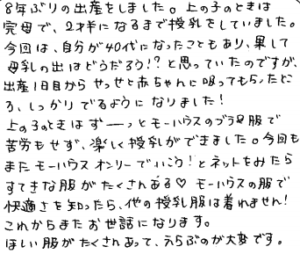 8年ぶりの出産をしました。上の子のときは
完母で、2才半になるまで授乳をしていました。
今回は、自分が40代になったこともあり、果して
母乳の出はどうだろう!?と思っていたのですが、
出産1日目からせっせと赤ちゃんに吸ってもらったとこ
ろ、しっかりでるようになりました!
上の子のときはずーっとモーハウスのブラと服で
苦労もせず、楽しく授乳ができました。今回も
またモーハウスオンリーでいこう!とネットをみたら
すてきな服がたくさんある♡ モーハウスの服で
快適さを知ったら、他の授乳服は着れません!
これからまたお世話になります。
ほしい服がたくさんあって、えらぶのが大変です。